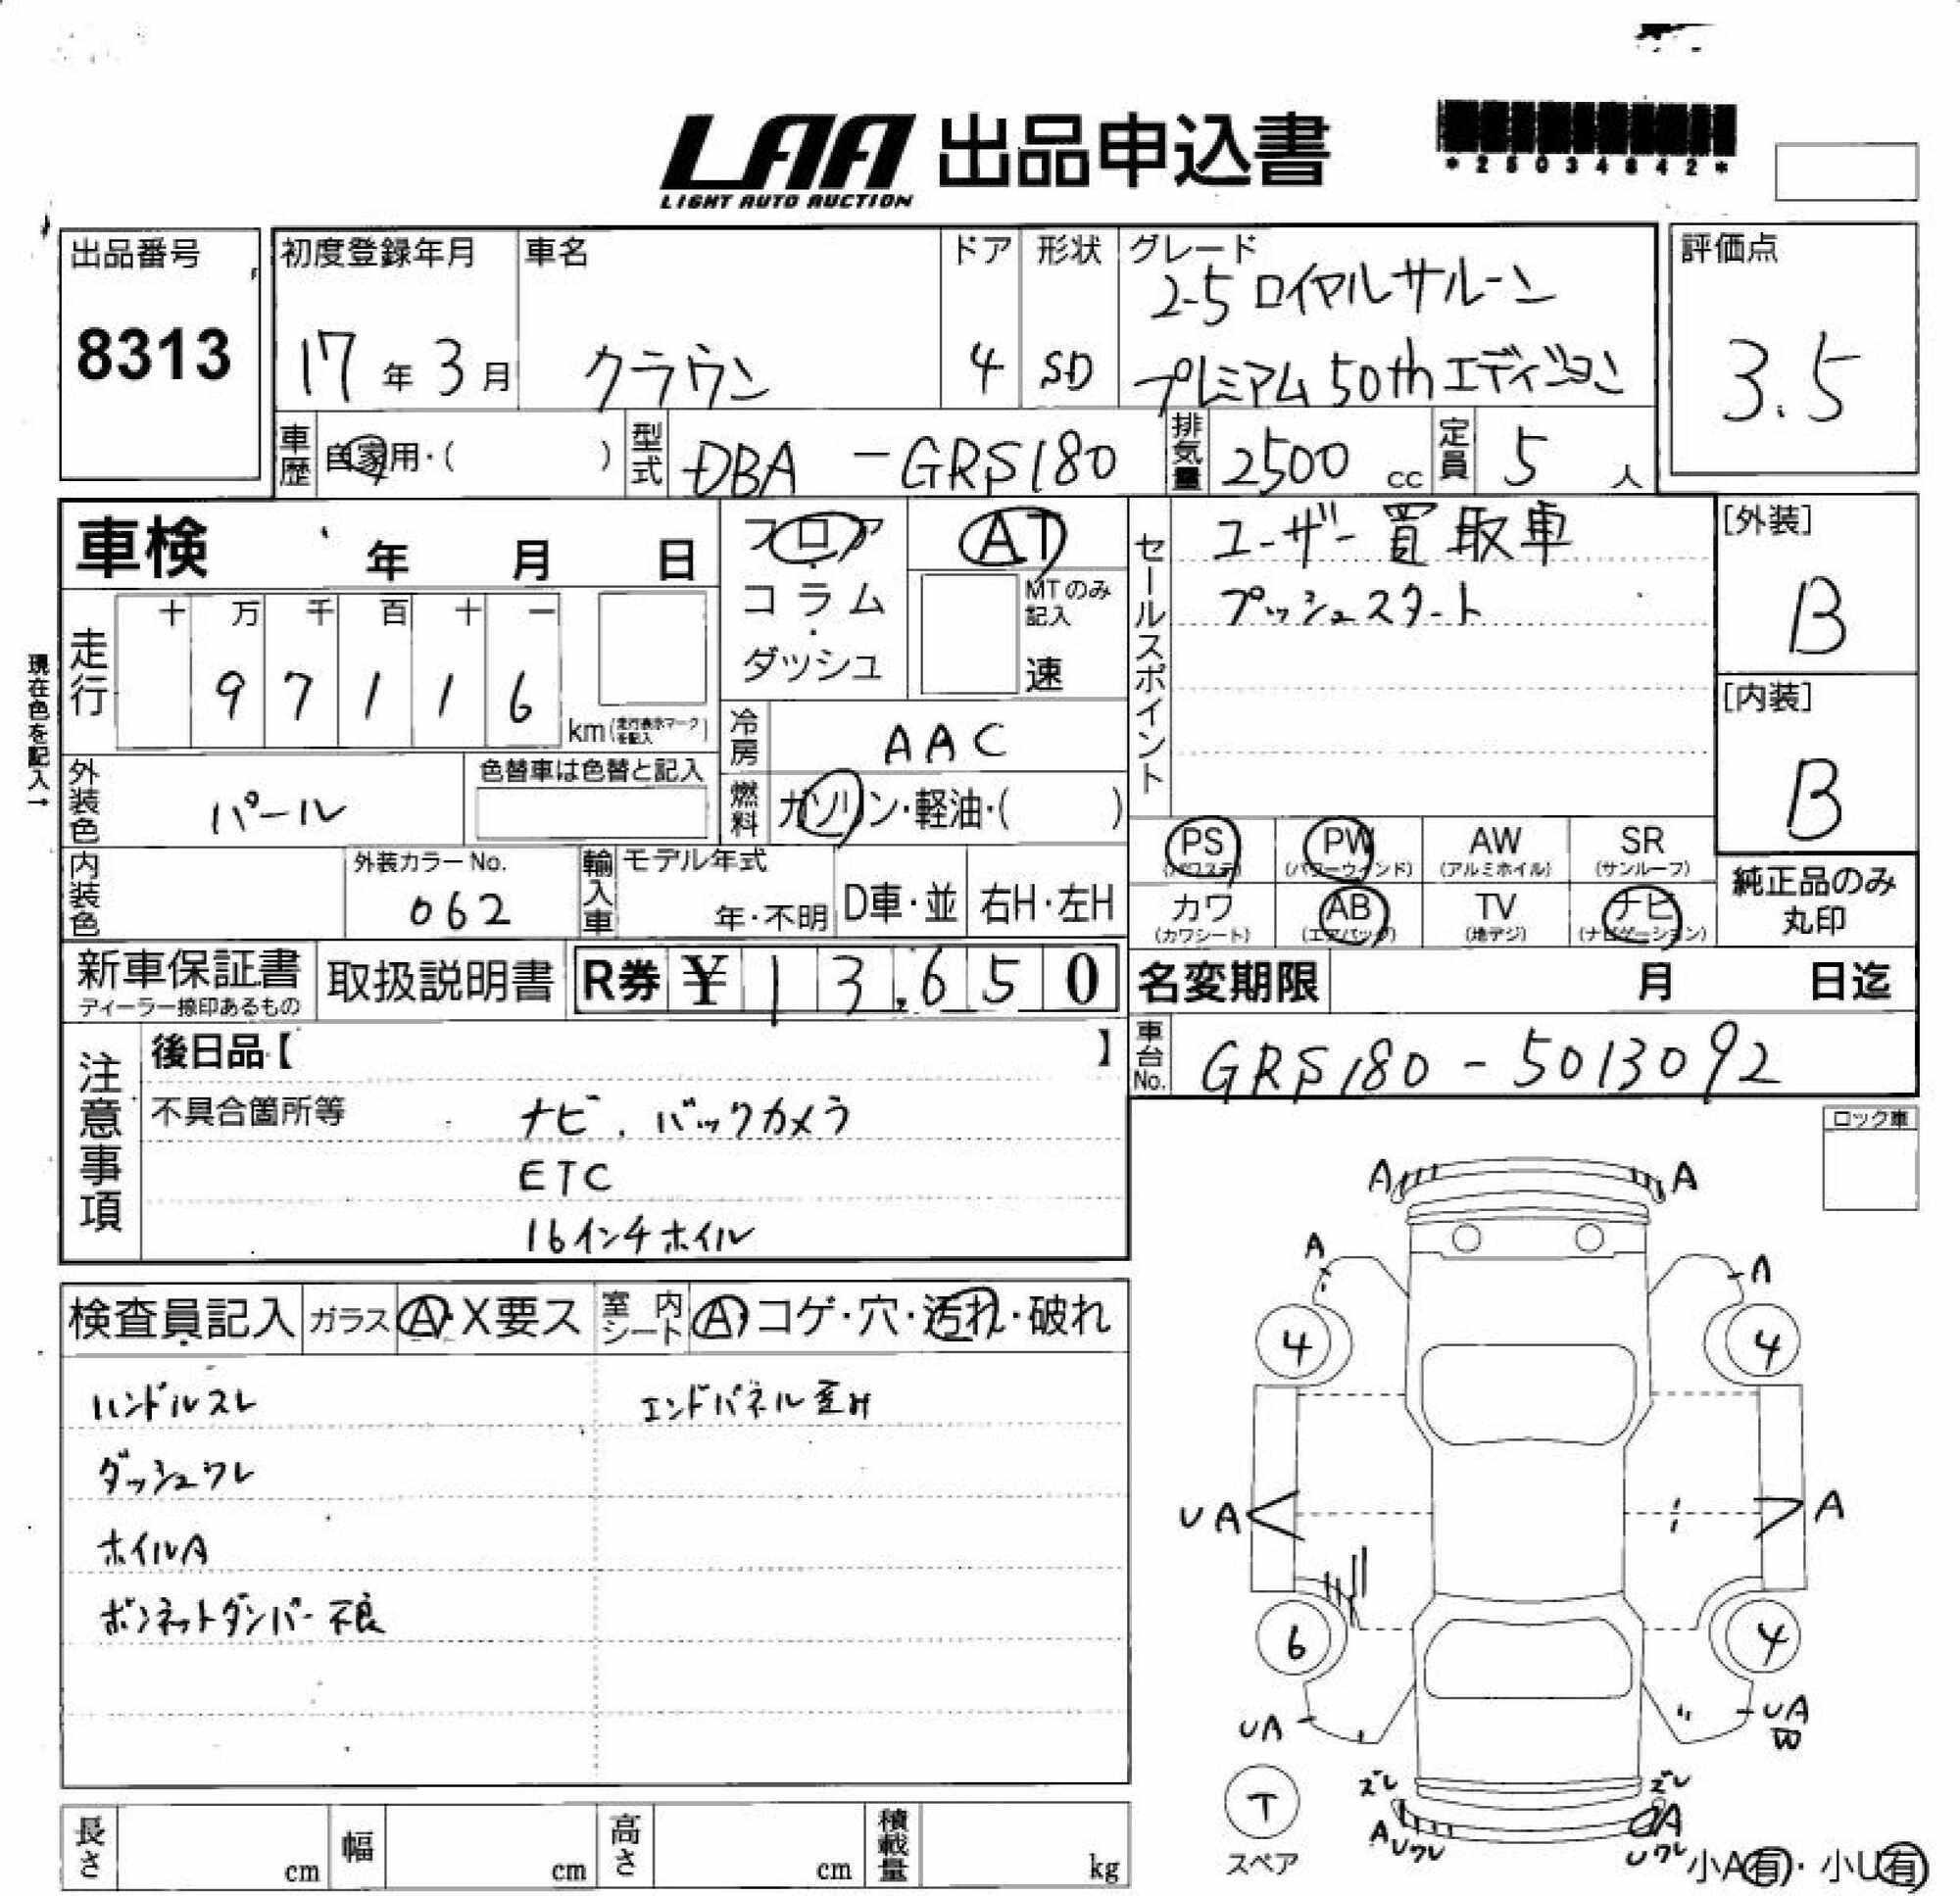 LAA 出品申込書
LIGHT AUTO AUCTION
*25034842*
出品番号
8313
初度登録年月
17年3月
車名
クラウン
ドア
4
形状
SD
グレード
2-5 ロイヤルサルーン
プレミアム 50th エディション
評価点
3.5
車歴
自家用・( )
型式
DBA -GRS180
排気量
2500 cc
定員
5 人
車検 年 月 日
フロア
コラム
ダッシュ
AT
MTのみ記入
速
セールスポイント
ユーザー買取車
プッシュスタート
[外装]
B
[内装]
B
現在色を記入→
走行
十 万 千 百 十 一
9 7 1 1 6
km(走行表示マークを記入)
冷房
AAC
外装色
パール
色替車は色替と記入
燃料
ガソリン・軽油・( )
内装色
外装カラーNo.
062
輸入車
モデル年式
年・不明
D車・並
右H・左H
PS (パワステ)
PW (パワーウインド)
AW (アルミホイル)
SR (サンルーフ)
カワ (カワシート)
AB (エアバッグ)
TV (地デジ)
ナビ (ナビゲーション)
純正品のみ
丸印
新車保証書
ディーラー捺印あるもの
取扱説明書
R券 ¥ 13,650
名変期限 月 日迄
車台No.
GRS180-5013092
注意事項
後日品【 】
不具合箇所等
ナビ . バックカメラ
ETC
16インチホイル
ロック車
検査員記入
ガラス
A・X要ス
室内シート
A・コゲ・穴・汚れ・破れ
ハンドルスレ
エンドパネル歪み
ダッシュワレ
ホイルA
ボンネットダンパー不良
A A
A A
4 4
UA A
6 4
UA UA
W
ズレ ズレ
T
スペア
A Uワレ
UA
Uワレ
小A有・小U有
長さ cm
幅 cm
高さ cm
積載量 kg